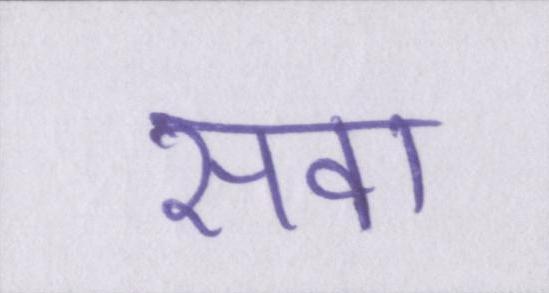 सवा